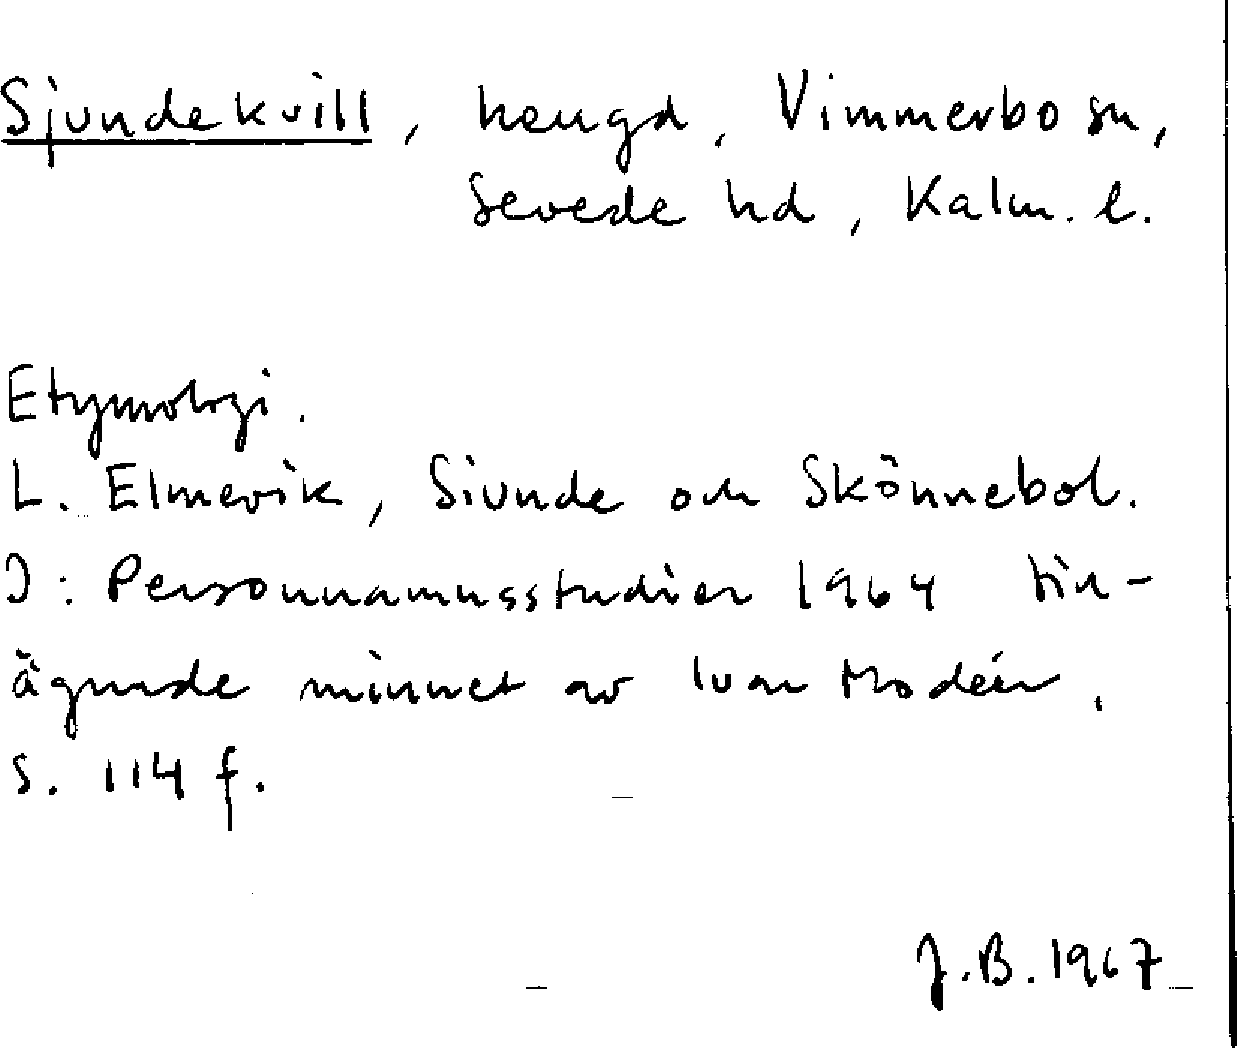 Sjundekvill, hengd, Vimmerbo sn,
Sevede hd, Kalm. l.
Etymologi.
L. Elmevik, Siunde och Skönnebol.
I: Personnamnsstudier 1964 till-
ägnade minnet av Ivar Modéer,
s. 114 f.
J.B. 1967